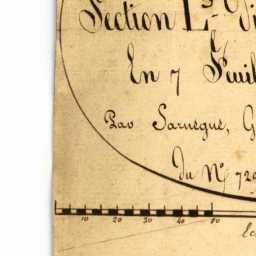 Section L.
En 7 Feuil
Par Sarnegue, G
Du N.° 729
10 20 30 40 50